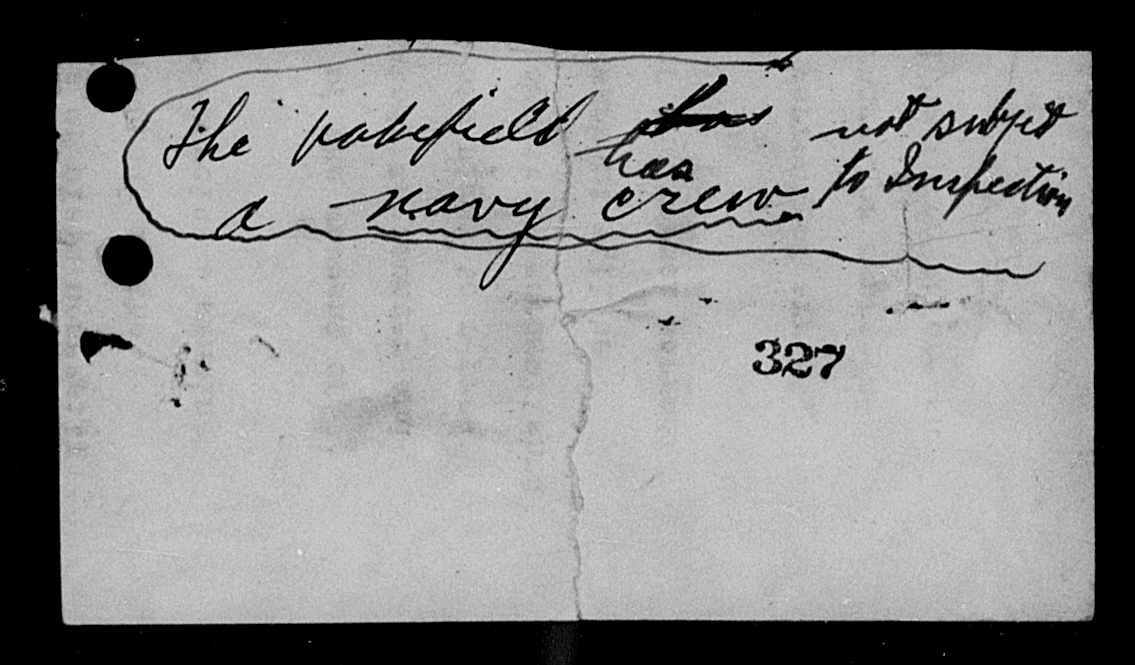 The Wakefield has not subject
has
a navy crew to Inspection
327